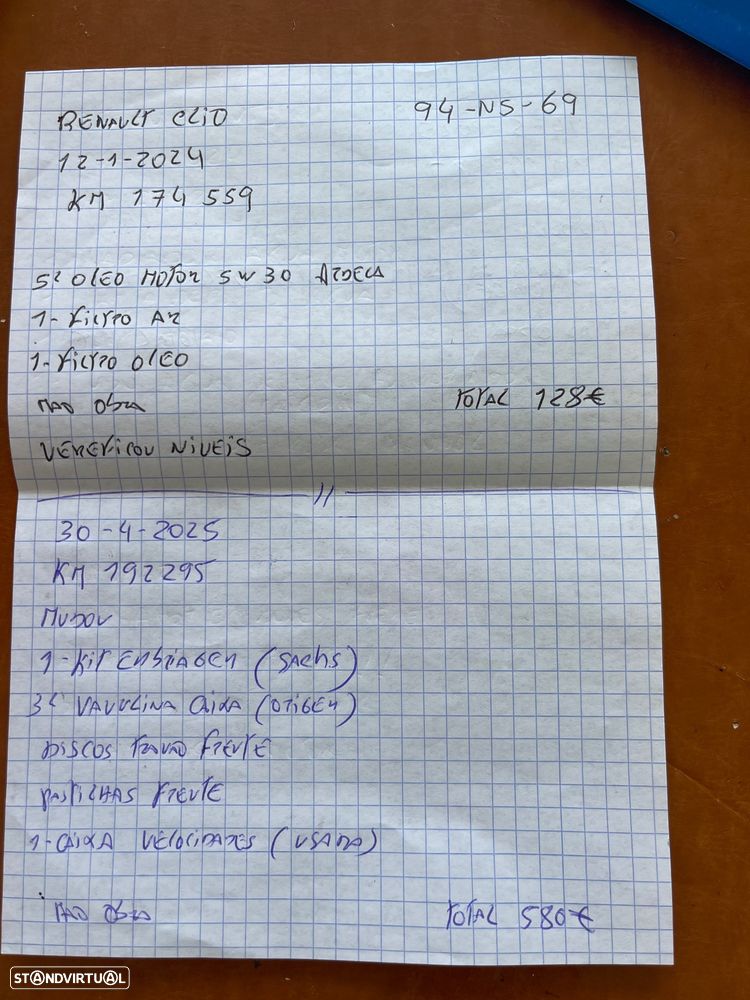 RENAULT CLIO 94-NS-69
12-1-2024
KM 174 559
5L OLEO MOTOR 5W30 ARDECA
1-FILTRO AR
1-FILTRO OLEO
MAO OBRA TOTAL 128€
VEREFICOU NIVEIS
30-4-2025
KM 192295
MUDOU
1-KIT EMBRIAGEM (SACHS)
3L VAVULINA CAIXA (ORIGEM)
DISCOS TRAVAO FRENTE
PASTILHAS FRENTE
1-CAIXA VELOCIDADES (USADA)
MAO OBRA TOTAL 580€
STANDVIRTUAL